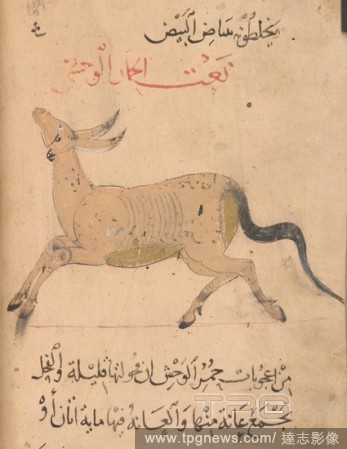 يخلطونه ببياض البيض
نعت الحمار الوحشي
TPG
من اعجوبات حمير الوحش ان فحولتها قليلة والفحل
يجمع عانة منها والعانة فيها ماية اتان أو
www.tpgnews.com / 達志影像